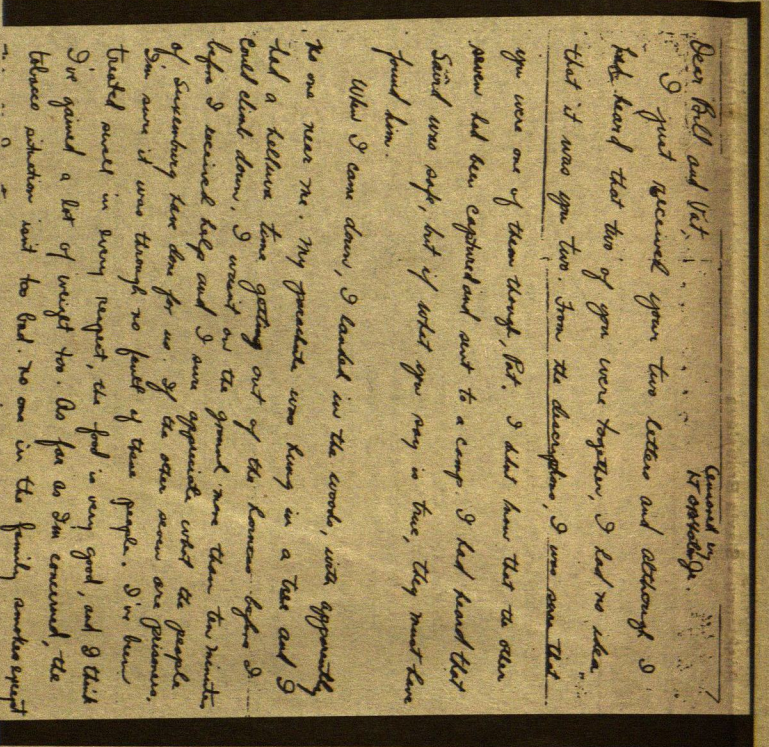 Censored by
Dear Bill and Pat,
I just received your two letters and although I
had heard that two of you were together, I had no idea
that it was you two. From the descriptions, I was sure that
you were one of them though, Pat. I didnt know that the other
seven had been captured and sent to a camp. I had heard that
was safe, but if what you say is true, they must have
found him.
When I came down, I landed in the woods, with apparently
no one near me. My parachute was hung in a tree and I
had a helluva time getting out of the harness before I
could climb down. I wasn't on the ground more than ten minutes
before I received help and I sure appreciate what the people
of Luxemburg have done for us. If the other seven are prisoners,
I'm sure it was through no fault of these people. I've been
treated swell in every respect, the food is very good, and I think
I've gained a lot of weight too. As far as I'm concerned, the
tobacco situation isnt too bad. No one in the family smokes except